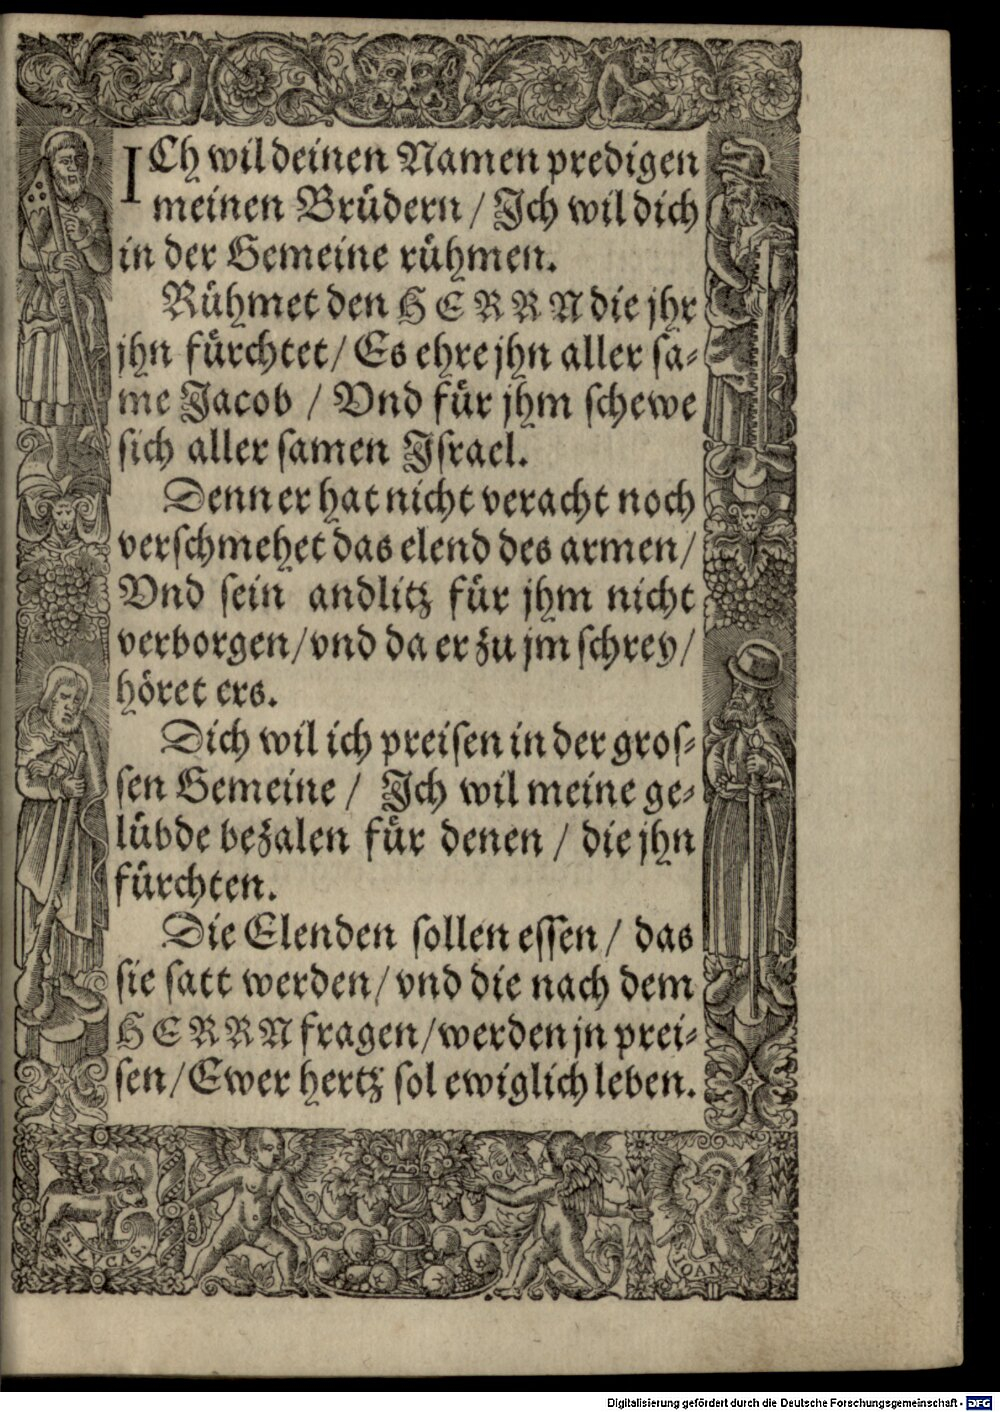 ICh wil deinen Namen predigen
meinen Brüdern / Ich wil dich
in der Gemeine rühmen.
Rühmet den HERRN die jhr
jhn fürchtet / Es ehre jhn aller sa⸗
me Jacob / Vnd für jhm schewe
sich aller samen Israel.
Denn er hat nicht veracht noch
verschmehet das elend des armen /
Vnd sein andlitz für jhm nicht
verborgen / vnd da er zu jm schrey /
höret ers.
Dich wil ich preisen in der gros⸗
sen Gemeine / Ich wil meine ge⸗
lübde bezalen für denen / die jhn
fürchten.
Die Elenden sollen essen / das
sie satt werden / vnd die nach dem
HERRN fragen / werden jn prei⸗
sen / Ewer hertz sol ewiglich leben.
S. LVCAS.
IOAN
Digitalisierung gefördert durch die Deutsche Forschungsgemeinschaft - DFG